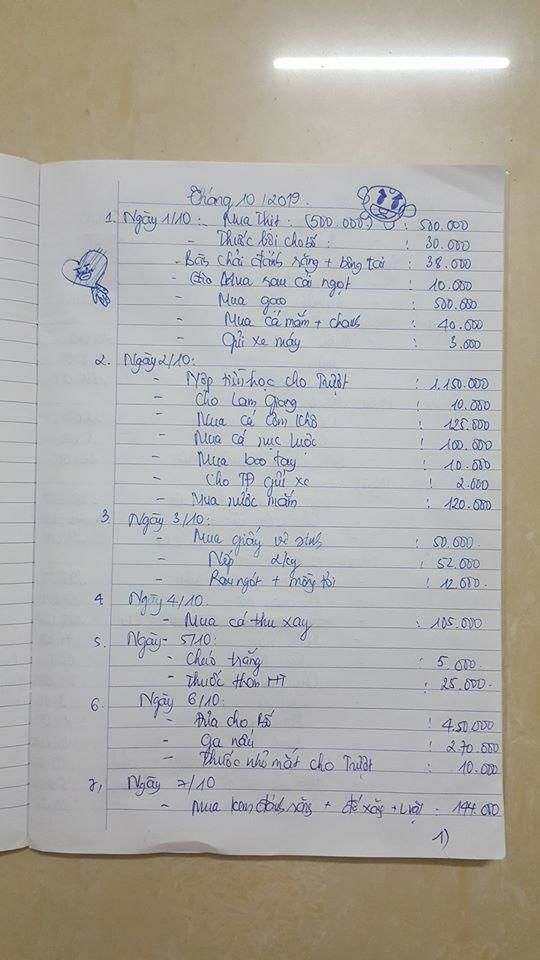 Tháng 10/2019.
1. Ngày 1/10: Mua thịt: (500.000) : 500.000
- Thuốc bôi cho bố : 30.000
- Bàn chải đánh răng + bông tai : 38.000
- Mua rau cải ngọt : 10.000
- Mua gạo : 500.000
- Mua cá mắm + chanh : 40.000
- Gửi xe máy : 3.000
2. Ngày 2/10:
- Nộp tiền học cho Trượt : 1.150.000
- Cho Lam Giang : 10.000
- Mua cá cơm khô : 125.000
- Mua cá nục luộc : 100.000
- Mua bao tay : 10.000
- Cho TĐ gửi xe : 2.000
- Mua nước mắm : 120.000
3. Ngày 3/10:
- Mua giấy vệ sinh : 50.000
- Nếp 2kg : 52.000
- Rau ngót + mồng tơi : 12.000
4. Ngày 4/10
- Mua cá thu xay : 105.000
5. Ngày 5/10
- Cháo trắng : 5.000
- Thuốc HT : 25.000
6. Ngày 6/10
- cho bố : 450.000
- Ga nấu : 270.000
- Thuốc nhỏ mắt cho Trượt : 10.000
7, Ngày 7/10
- Mua kem đánh răng + : 144.000
1)